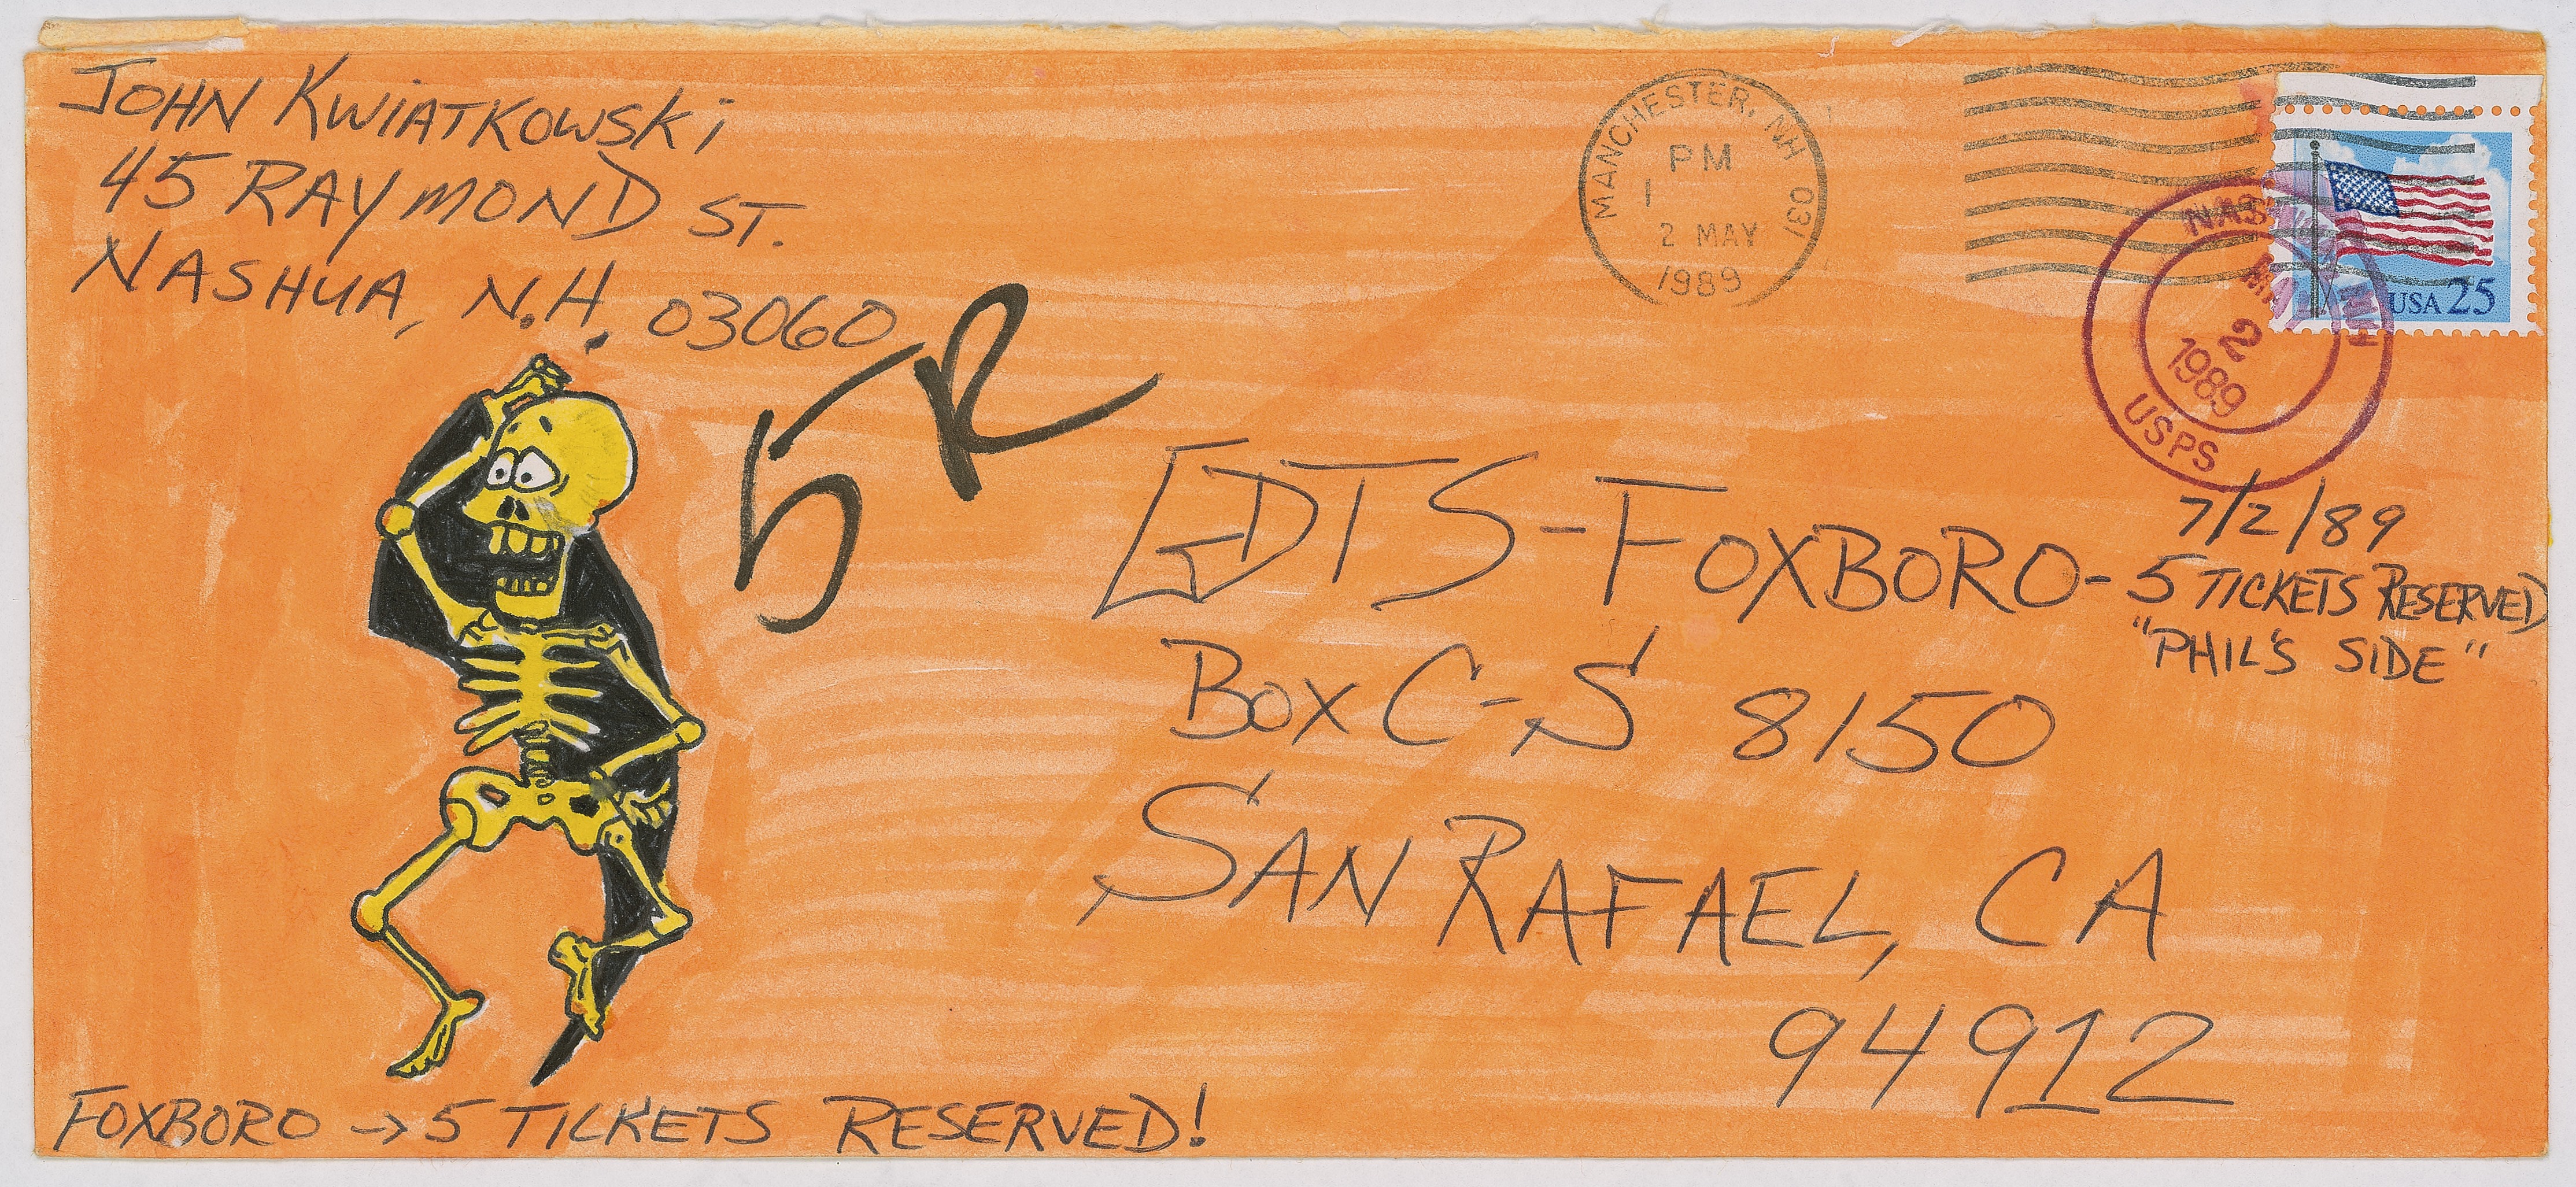 JOHN KWIATKOWSKI
45 RAYMOND ST.
NASHUA, N.H. 03060
5R
MANCHESTER, NH 031
PM
1
2 MAY
1989
USA 25
MAY
2
1989
USPS
GDTS-FOXBORO-
7/2/89
5 TICKETS RESERVED
"PHIL'S SIDE"
BOX C-S 8150
SAN RAFAEL, CA
94912
FOXBORO → 5 TICKETS RESERVED!